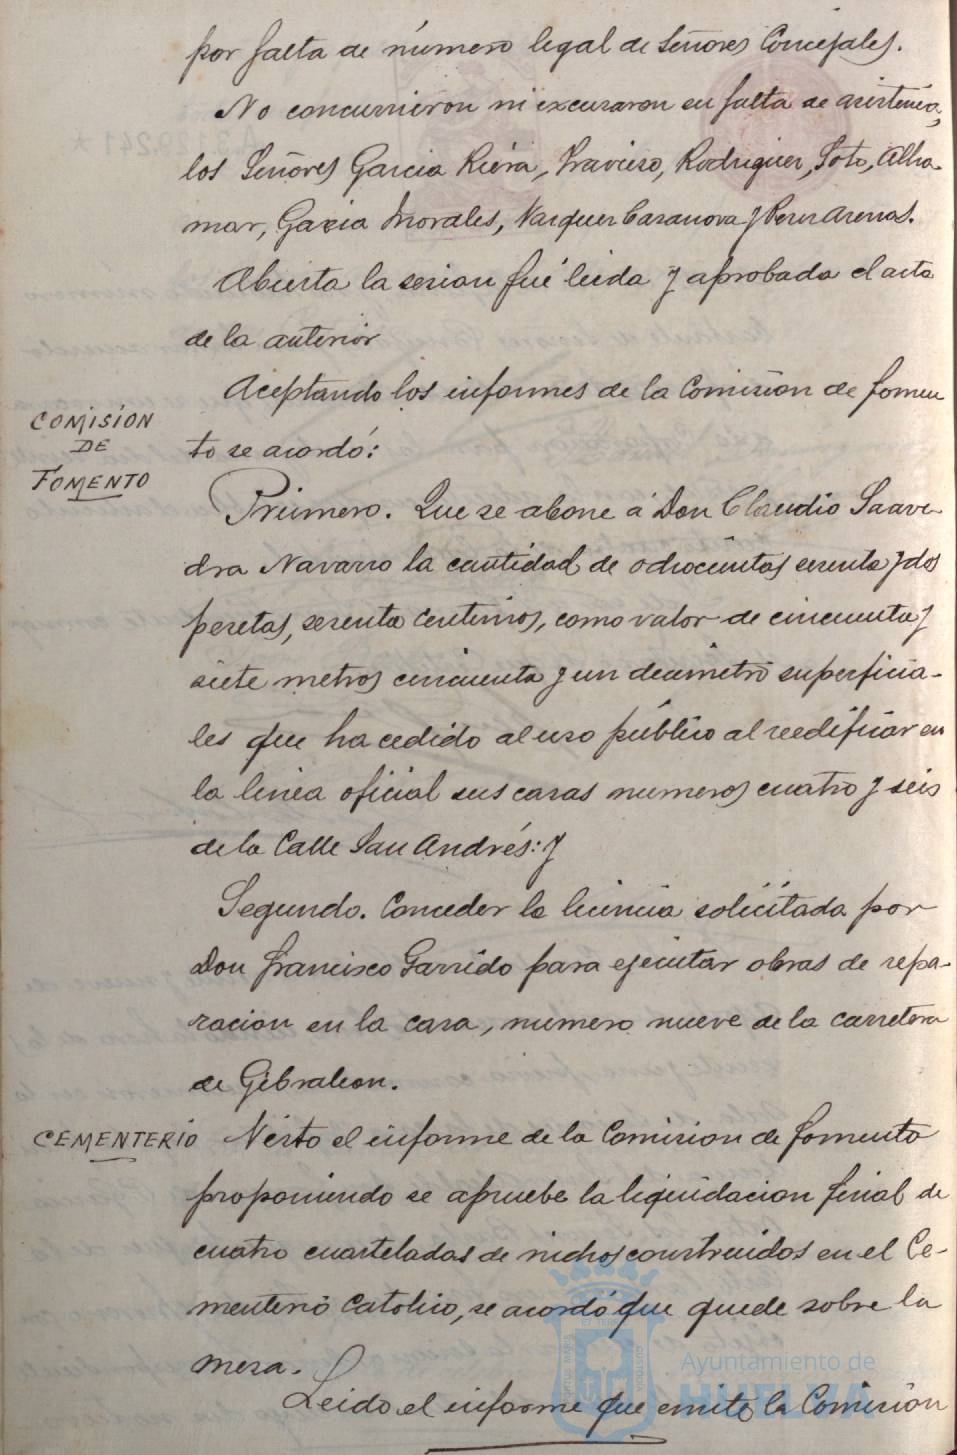 por falta de número legal de Señores Concejales.
No concurrieron ni excusaron su falta de asistencia,
los Señores Garcia Riera, Travieso, Rodriguez, Soto, Alha-
mar, Gazia Morales, Vazquez Casanova y Perez Arenas.
Abierta la sesion fué leida y aprobada el acta
de la anterior
Aceptando los informes de la Comision de fomen
COMISION
DE
FOMENTO
to se acordó:
Primero. Que se abone á Don Claudio Saave-
dra Navarro la cantidad de ochocientas sesenta y dos
pesetas, sesenta centimos, como valor de cincuenta y
siete metros cincuenta y un decimetro superficia-
les que ha cedido al uso público al reedificar en
la linea oficial sus casas numeros cuatro y seis
de la Calle San Andrés: y
Segundo. Conceder la licencia solicitada por
Don francisco Garrido para ejecutar obras de repa-
racion en la casa, numero nueve de la carretera
de Gibraleon.
CEMENTERIO
Visto el informe de la Comision de fomento
proponiendo se apruebe la liquidacion final de
cuatro cuarteladas de nichos construidos en el Ce-
menterio Catolico, se acordó que quede sobre la
mesa.
Leido el informe que emite la Comision
Ayuntamiento de
HUELVA